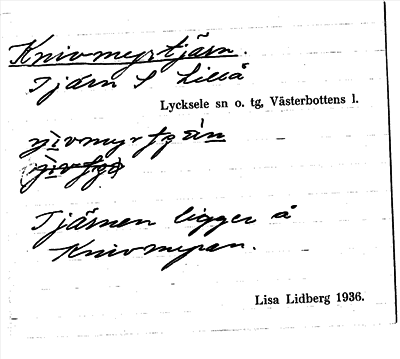 Knivmyrtjärn.
Tjärn S Lillå
Lycksele sn o. tg, Västerbottens l.
Tjärnen ligger å
Knivmyran.
Lisa Lidberg 1936.